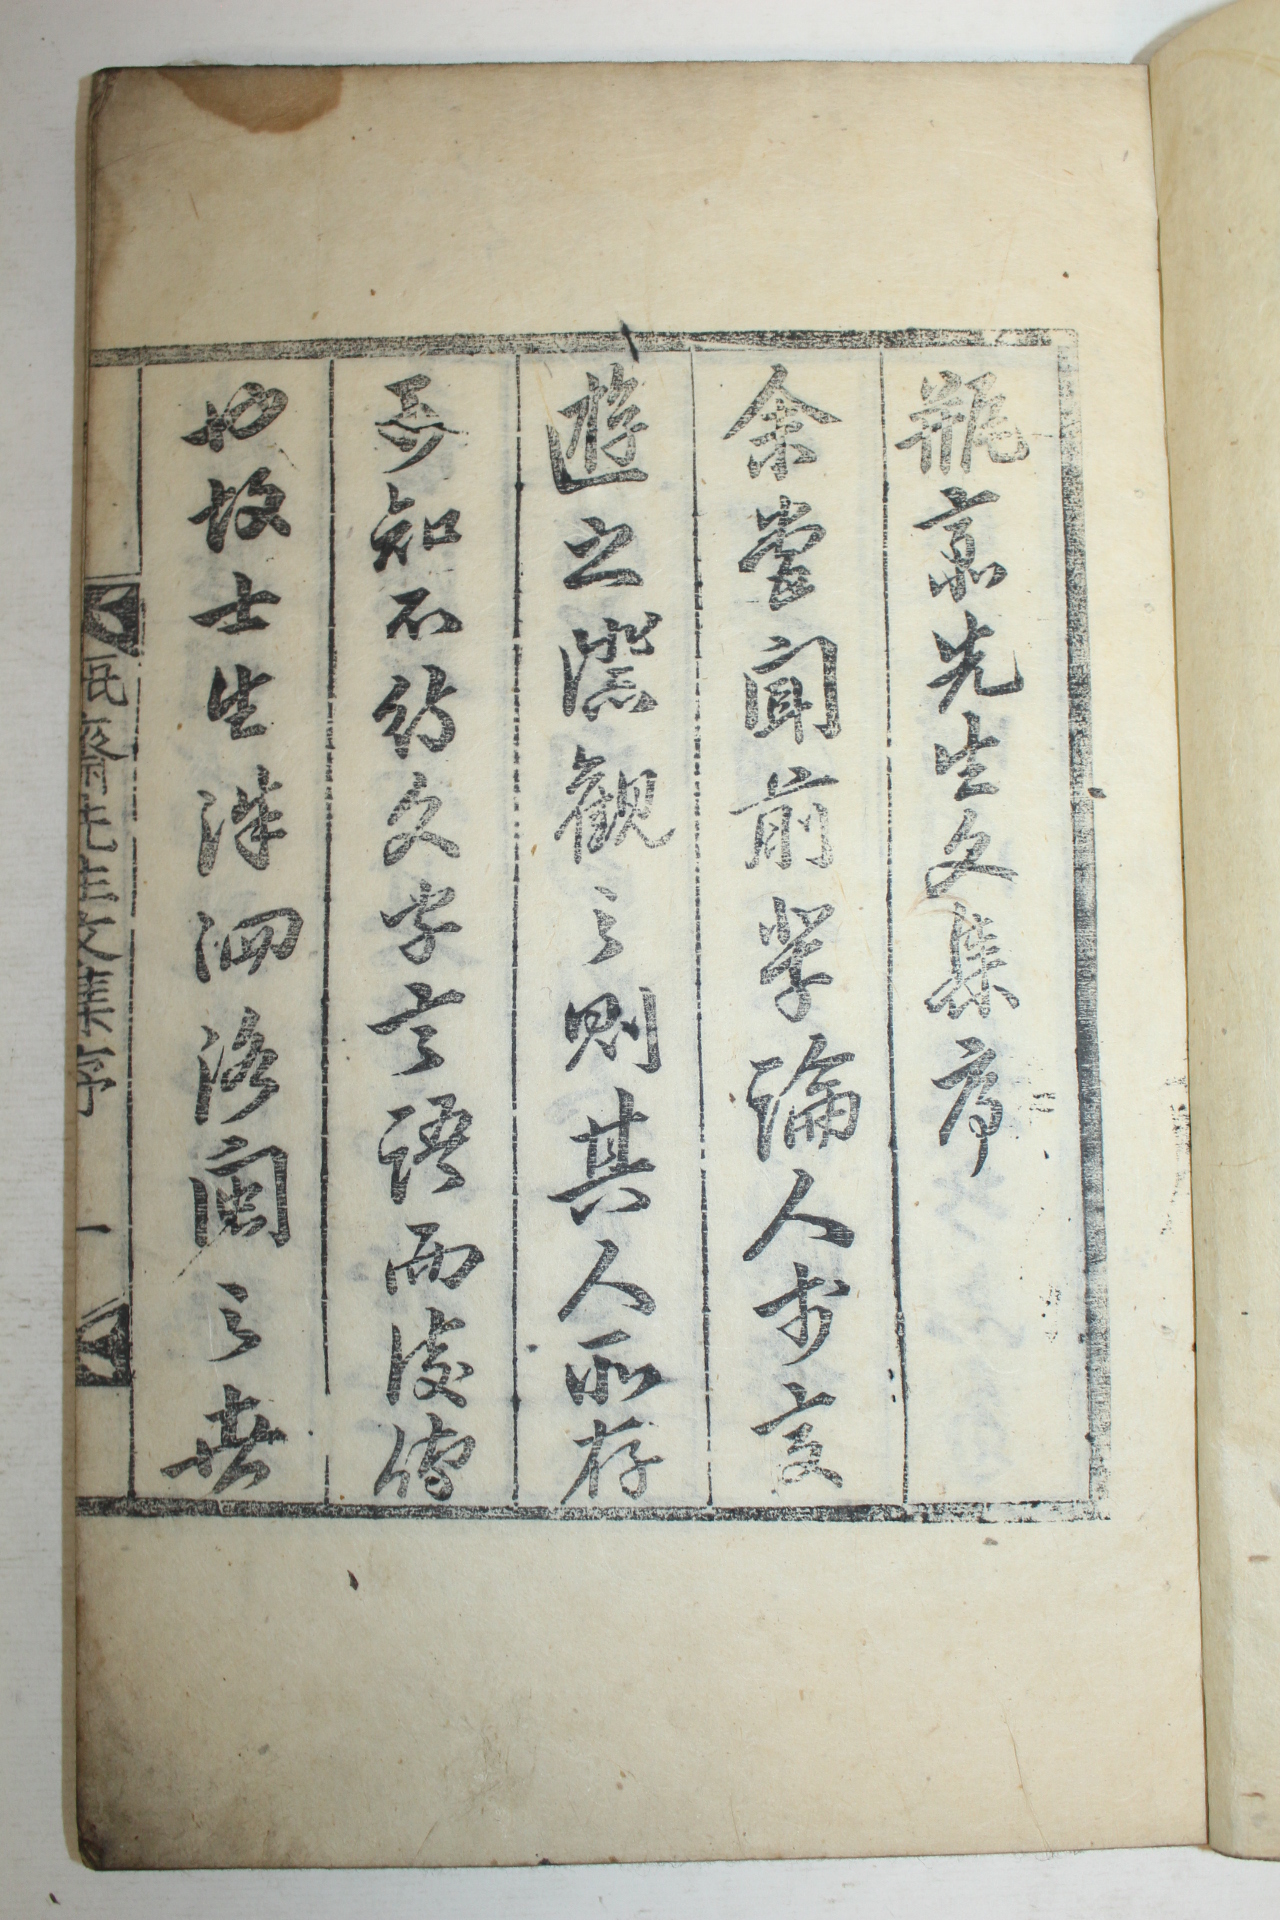 瓶齋先生文集序
余嘗聞前輩論人於交
遊之際觀之則其人所存
知不待文字言語而後傳
也故士生洙泗洛閩之世
齋先生文集序
一